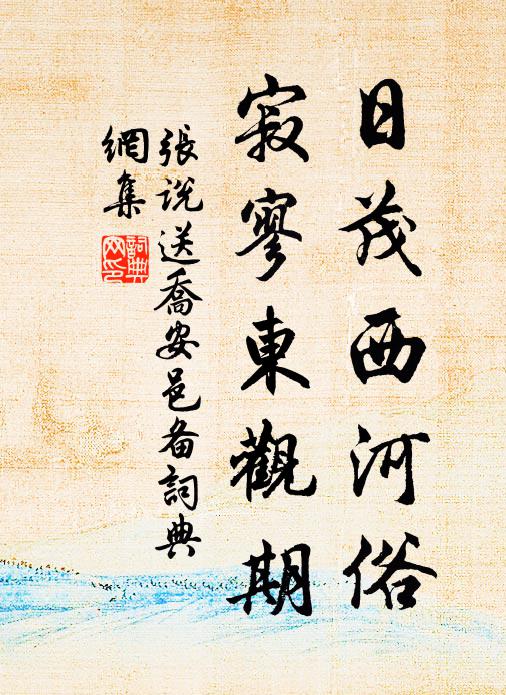 日茂西河俗
寂寥東觀期
張說送喬安邑备詞典
網集
詞典
网印